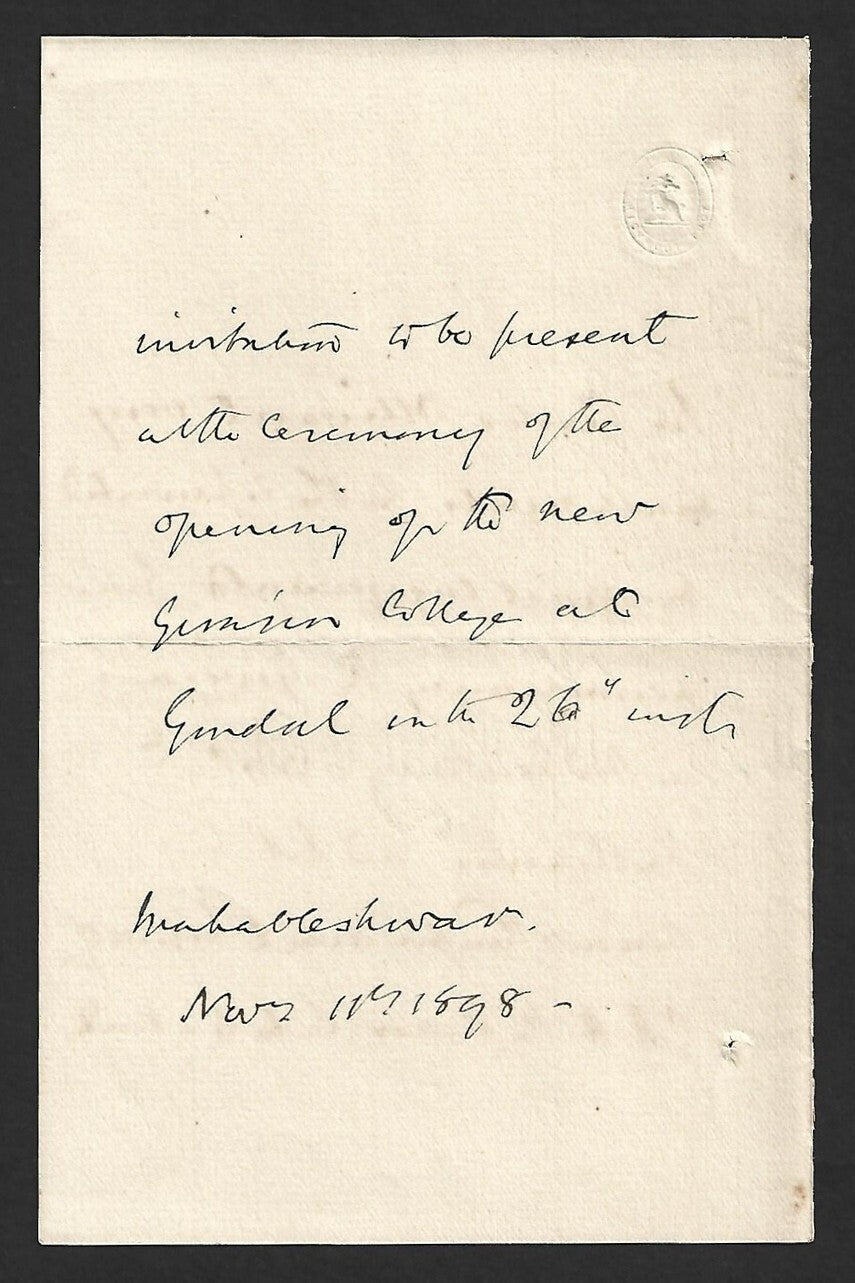 invitation to be present
at the Ceremony of the
opening of the new
Girassia College at
Gondal on the 26th inst.
Mahableshwar.
Novr 11th 1898 -